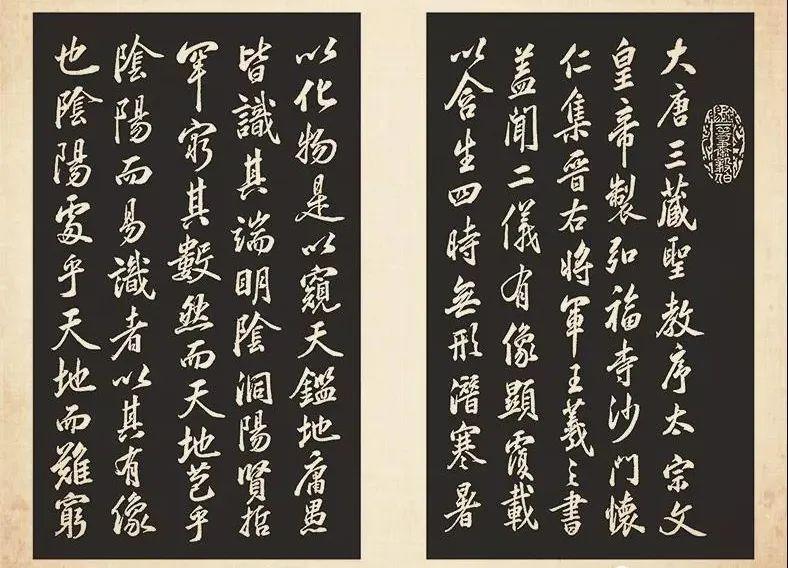 大唐三藏聖教序太宗文
皇帝製弘福寺沙門懷
仁集晉右將軍王羲之書
盖聞二儀有像顯覆載
以含生四時無形潛寒暑
以化物是以窺天鑑地庸愚
皆識其端明陰洞陽賢哲
罕窮其數然而天地苞乎
陰陽而易識者以其有像
也陰陽處乎天地而難窮